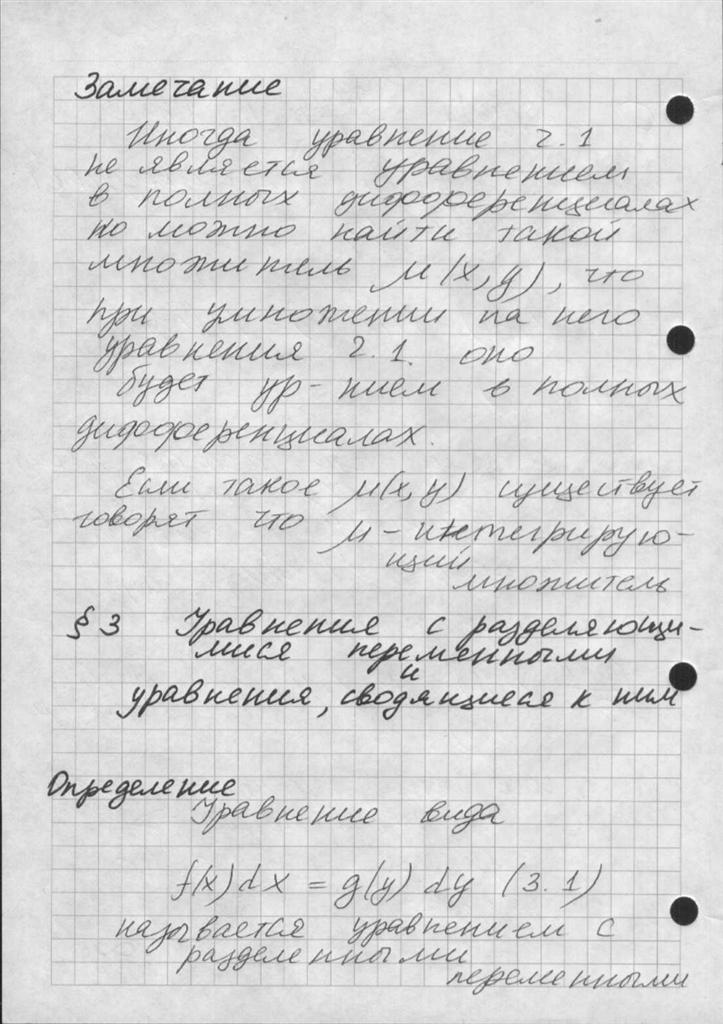 Замечание
Иногда уравнение 2.1
не является уравнением
в полных дифференциалах
но можно найти такой
множитель μ(x,y), что
при умножении на него
уравнения 2.1. оно
будет ур-нием в полных
дифференциалах.
Если такое μ(x,y) существует
говорят что μ - интегрирую-
щий
множитель
§ 3 Уравнения с разделяющи-
мися переменными
и
уравнения, сводящиеся к ним
Определение
Уравнение вида
f(x)dx = g(y)dy (3.1)
называется уравнением с
разделенными
переменными